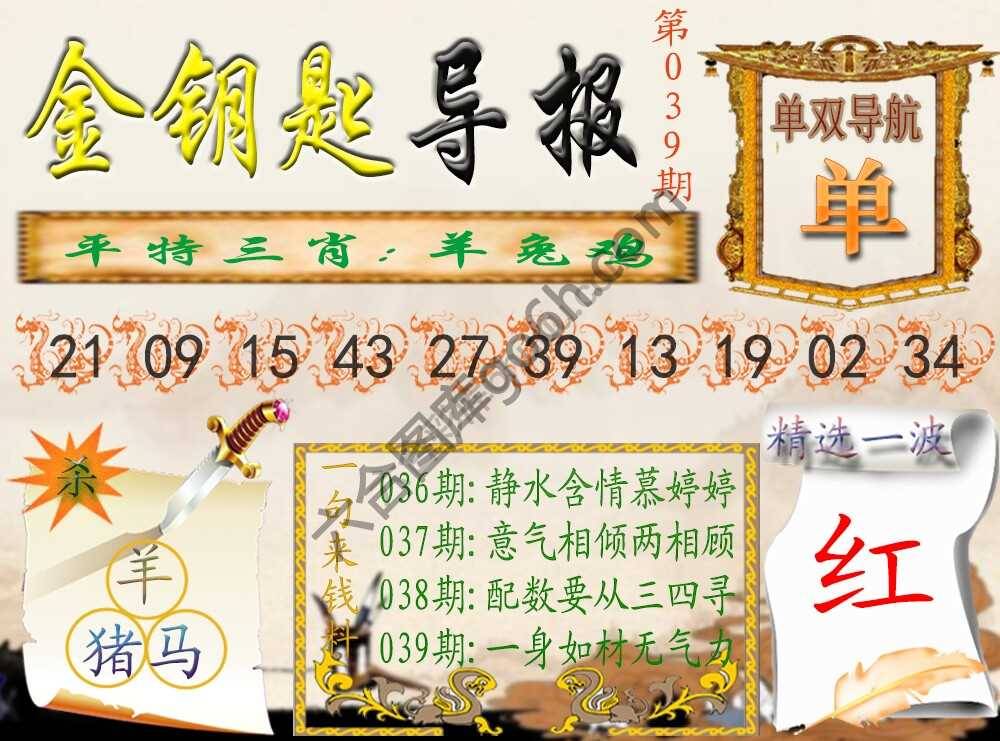 金钥匙导报
第039期
单双导航
单
平特三肖:羊兔鸡
21 09 15 43 27 39 13 19 02 34
杀
羊
猪马
一句来钱料
036期:静水含情慕婷婷
037期:意气相倾两相顾
038期:配数要从三四寻
039期:一身如材无气力
精选一波
红